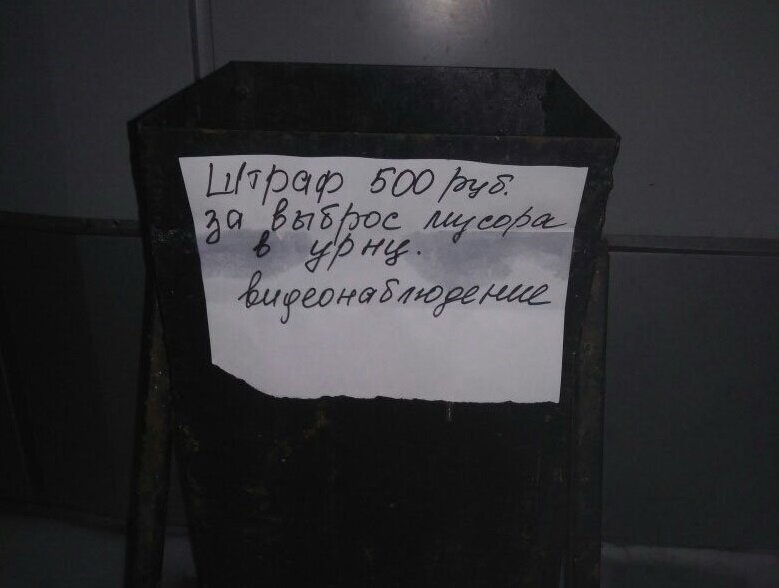 Штраф 500 руб.
за выброс мусора
в урну.
видеонаблюдение